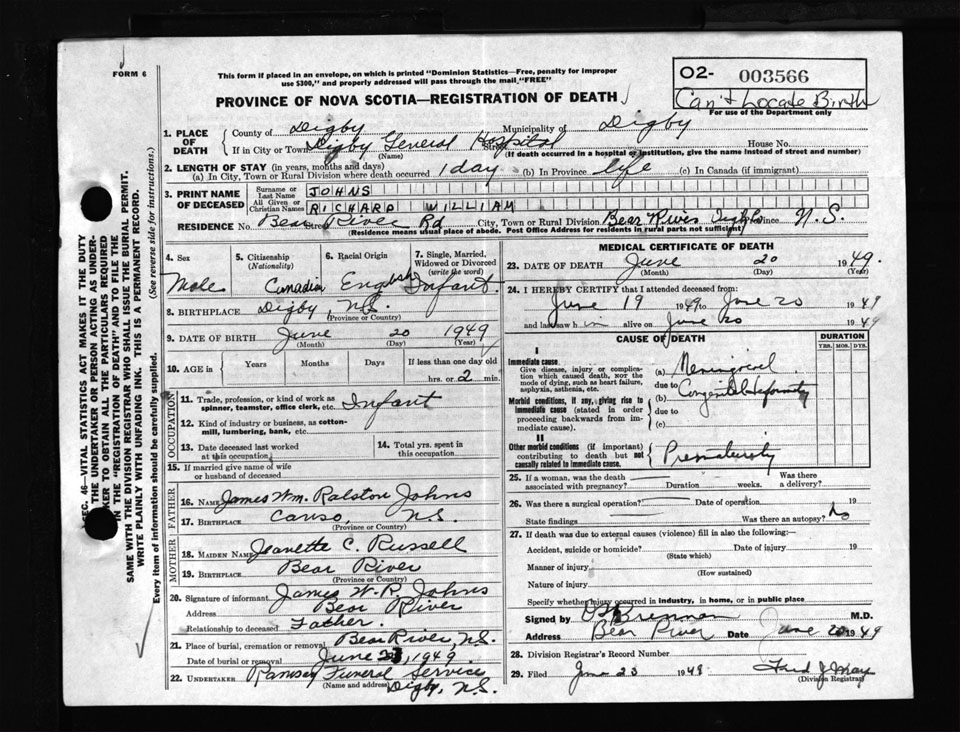 FORM 6
This form if placed in an envelope, on which is printed "Dominion Statistics—Free, penalty for improper
use $300," and properly addressed will pass through the mail, "FREE"
PROVINCE OF NOVA SCOTIA—REGISTRATION OF DEATH
O2- 003566
Can't Locate Birth
For use of the Department only
SEC. 46—VITAL STATISTICS ACT MAKES IT THE DUTY
THE UNDERTAKER OR PERSON ACTING AS UNDER-
KER TO OBTAIN ALL THE PARTICULARS REQUIRED
IN THE "REGISTRATION OF DEATH" AND TO FILE THE
SAME WITH THE DIVISION REGISTRAR WHO SHALL ISSUE THE BURIAL PERMIT.
WRITE PLAINLY WITH UNFADING INK. THIS IS A PERMANENT RECORD.
Every item of information should be carefully supplied. (See reverse side for instructions.)
1. PLACE OF DEATH
County of Digby Municipality of Digby
If in City or Town Digby General Hospital Street House No.
(Name) (If death occurred in a hospital or institution, give the name instead of street and number)
2. LENGTH OF STAY (in years, months and days)
(a) In City, Town or Rural Division where death occurred 1 day (b) In Province life (c) In Canada (if immigrant)
3. PRINT NAME OF DECEASED
Surname or Last Name JOHNS
All Given or Christian Names RICHARD WILLIAM
RESIDENCE No. Bear River Rd Street City, Town or Rural Division Bear River Digby Province N.S.
(Residence means usual place of abode. Post Office Address for residents in rural parts not sufficient)
4. Sex Male
5. Citizenship (Nationality) Canadian
6. Racial Origin English
7. Single, Married, Widowed or Divorced (write the word) Infant
8. BIRTHPLACE Digby N.S.
(Province or Country)
9. DATE OF BIRTH June 20 1949
(Month) (Day) (Year)
10. AGE in Years Months Days If less than one day old
hrs. or 2 min.
OCCUPATION
11. Trade, profession, or kind of work as spinner, teamster, office clerk, etc. Infant
12. Kind of industry or business, as cotton-mill, lumbering, bank, etc.
13. Date deceased last worked at this occupation
14. Total yrs. spent in this occupation
15. If married give name of wife or husband of deceased
FATHER
16. NAME James Wm. Ralston Johns
17. BIRTHPLACE Canso, N.S.
(Province or Country)
MOTHER
18. MAIDEN NAME Jeanette C. Russell
19. BIRTHPLACE Bear River
(Province or Country)
20. Signature of informant James W. R. Johns
Address Bear River
Relationship to deceased Father.
21. Place of burial, cremation or removal Bear River, N.S.
Date of burial or removal June 23, 1949
22. UNDERTAKER Ramsay Funeral Service
(Name and address) Digby, N.S.
MEDICAL CERTIFICATE OF DEATH
23. DATE OF DEATH June 20 1949.
(Month) (Day) (Year)
24. I HEREBY CERTIFY that I attended deceased from:
June 19 1949 to June 20 1949
and last saw him alive on June 20 1949
CAUSE OF DEATH
DURATION
YRS. MOS. DYS.
I
Immediate cause
Give disease, injury or complication which caused death, NOT the mode of dying, such as heart failure, asphyxia, asthenia, etc.
(a) Meningocoel
due to
Morbid conditions, if any, giving rise to immediate cause (stated in order proceeding backwards from immediate cause).
(b) Congenital deformity
due to
(c)
II
Other morbid conditions (if important) contributing to death but not causally related to immediate cause.
Prematurity
25. If a woman, was the death associated with pregnancy? Duration weeks. Was there a delivery?
26. Was there a surgical operation? Date of operation 19
State findings Was there an autopsy? No
27. If death was due to external causes (violence) fill in also the following:—
Accident, suicide or homicide? Date of injury 19
(State which)
Manner of injury
(How sustained)
Nature of injury
Specify whether injury occurred in industry, in home, or in public place
Signed by Brennan M.D.
Address Bear River Date June 20 1949
28. Division Registrar's Record Number
29. Filed June 23 1949
(Division Registrar)